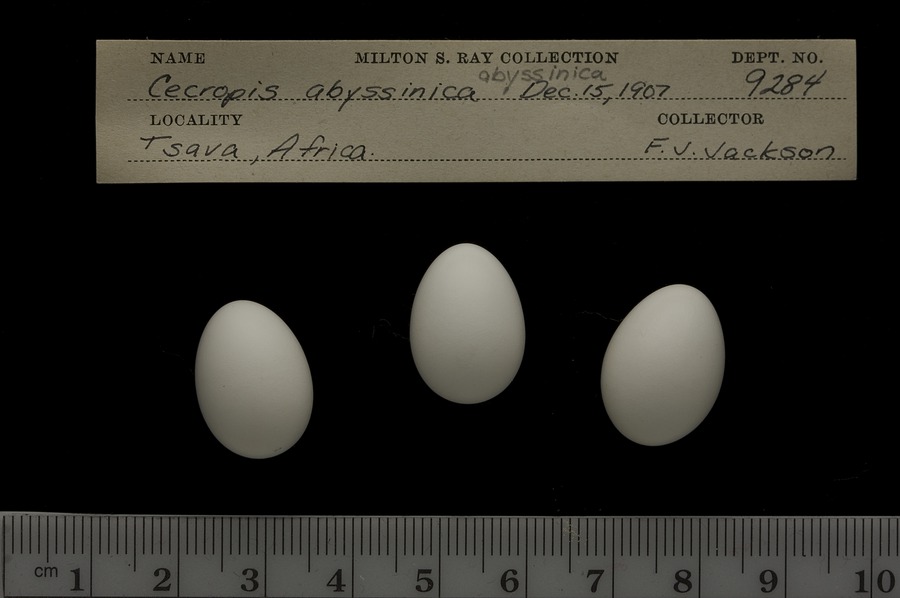 NAME MILTON S. RAY COLLECTION DEPT. NO.
abyssinica
Cecropis abyssinica Dec. 15, 1907 9284
LOCALITY COLLECTOR
Tsava, Africa. F. J. Jackson
cm 1 2 3 4 5 6 7 8 9 10